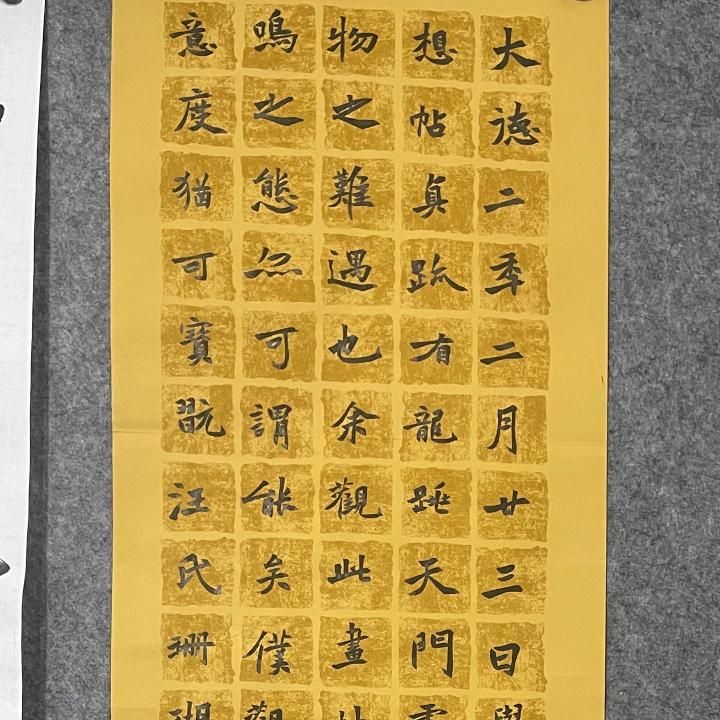 大德二年二月廿三日
想帖真跡有龍跳天門
物之難遇也余觀此畫
鳴之態亦可謂能矣僕
意度猶可寶翫汪氏珊瑚